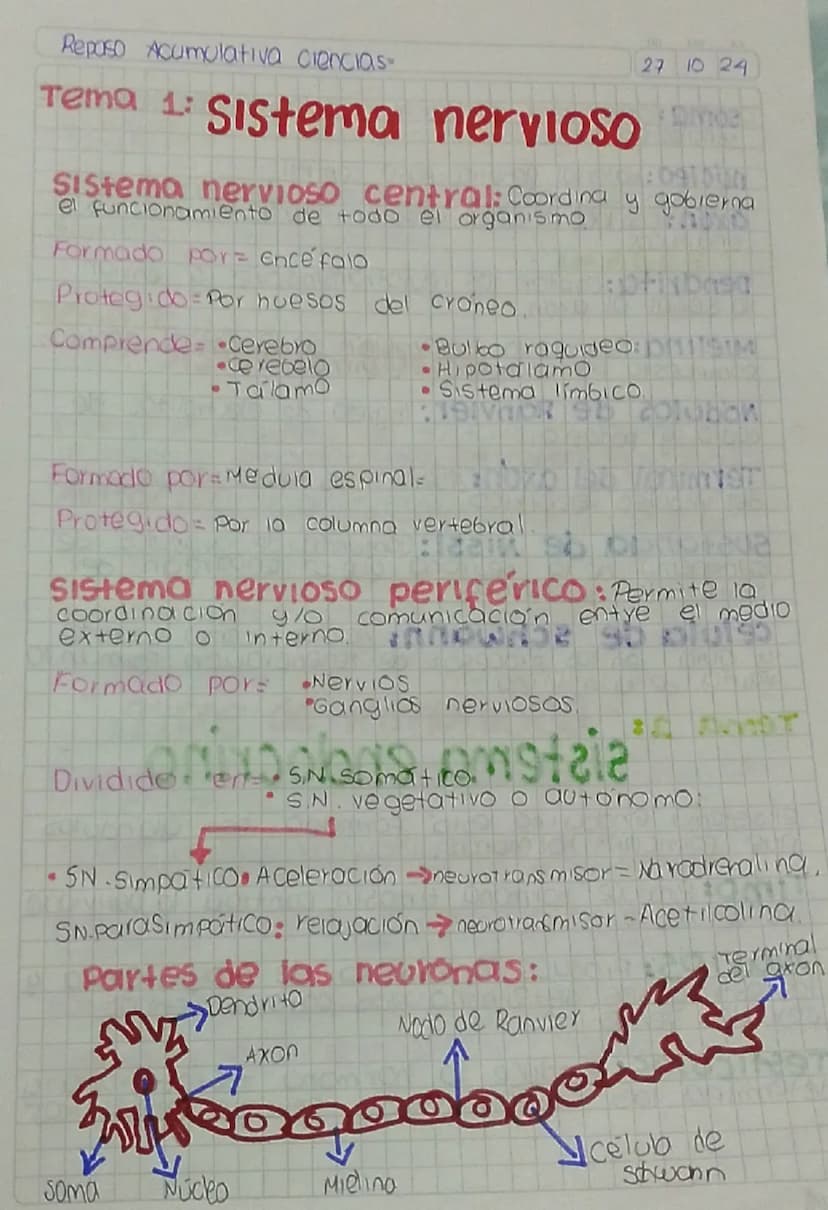 Repaso Acumulativa ciencias
27 10 24
Tema 1: Sistema nervioso
Sistema nervioso central: Coordina y gobierna
el funcionamiento de todo el organismo.
Formado por= encéfalo
Protegido= Por huesos del cráneo.
Comprende= •Cerebro •Bulbo raquídeo
•Cerebelo •Hipotálamo
•Tálamo •Sistema límbico
Formado por= Medula espinal
Protegido= Por la columna vertebral.
Sistema nervioso periférico: Permite la
coordinación y/o comunicación entre el medio
externo o interno.
Formado por= •Nervios
•Ganglios nerviosos.
Dividido en= • S.N. somático.
• S.N. vegetativo o autónomo:
• SN. Simpático. Aceleración → neurotransmisor = Noradrenalina.
SN. parasimpático: relajación → neurotransmisor - Acetilcolina.
Partes de las neuronas:
Terminal
del axon
Dendrito
Nodo de Ranvier
Axon
Célula de
Schwann
Soma
Núcleo
Mielina
Tema 2:
sistema endocrino